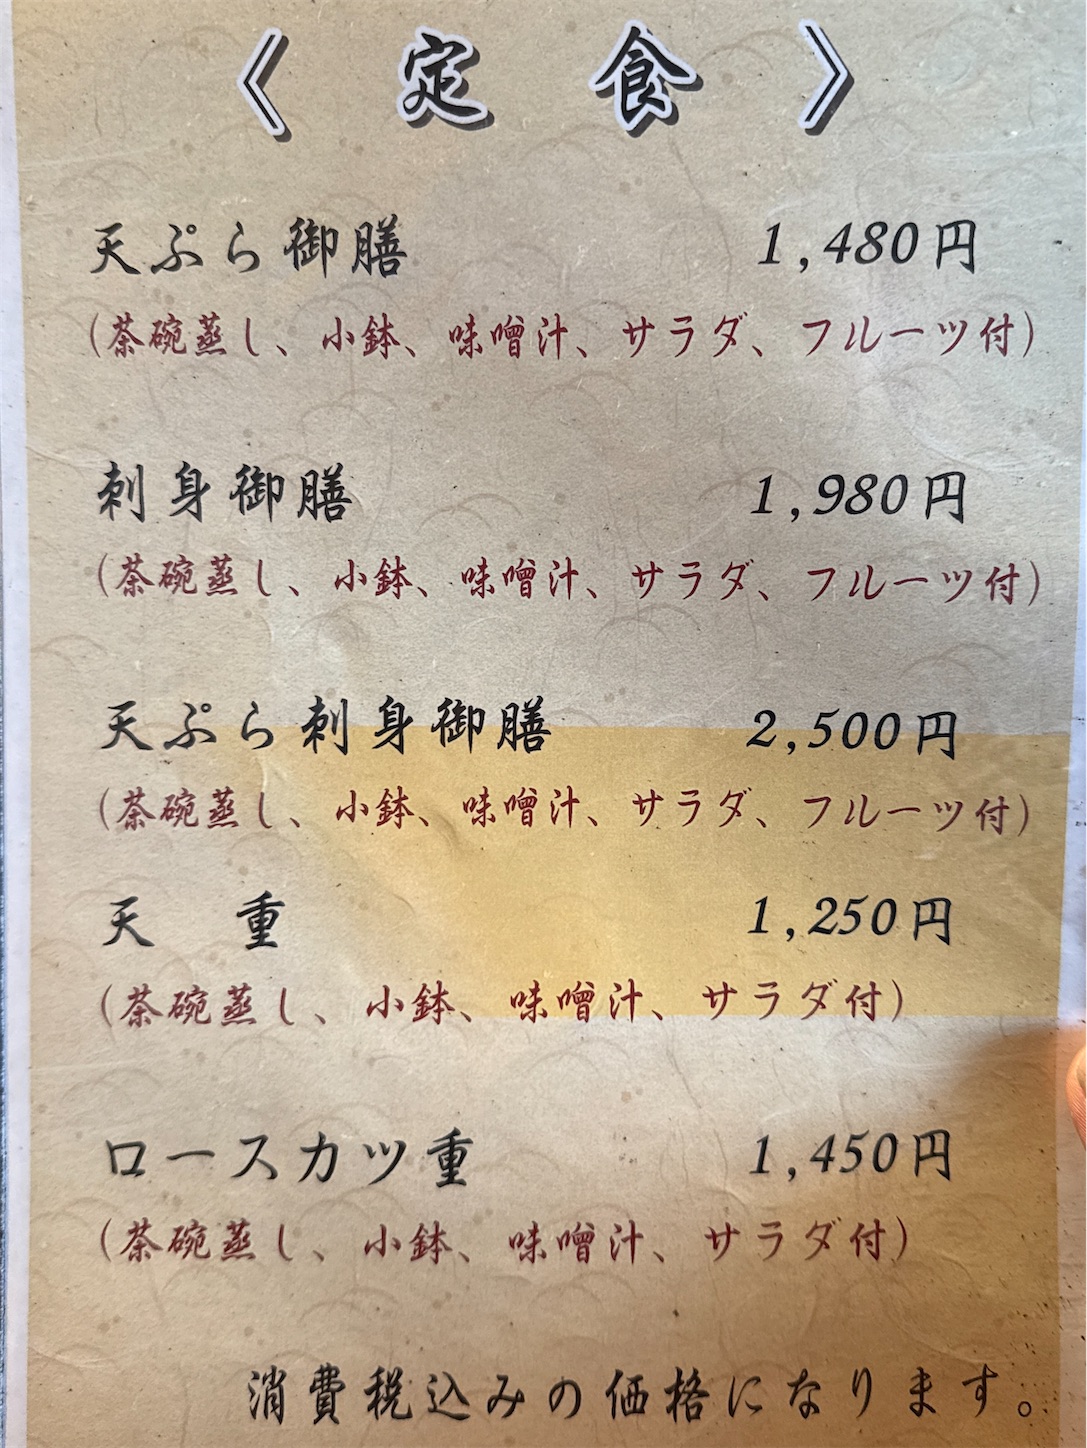 《 定 食 》
天ぷら御膳 1,480円
(茶碗蒸し、小鉢、味噌汁、サラダ、フルーツ付)
刺身御膳 1,980円
(茶碗蒸し、小鉢、味噌汁、サラダ、フルーツ付)
天ぷら刺身御膳 2,500円
(茶碗蒸し、小鉢、味噌汁、サラダ、フルーツ付)
天 重 1,250円
(茶碗蒸し、小鉢、味噌汁、サラダ付)
ロースカツ重 1,450円
(茶碗蒸し、小鉢、味噌汁、サラダ付)
消費税込みの価格になります。